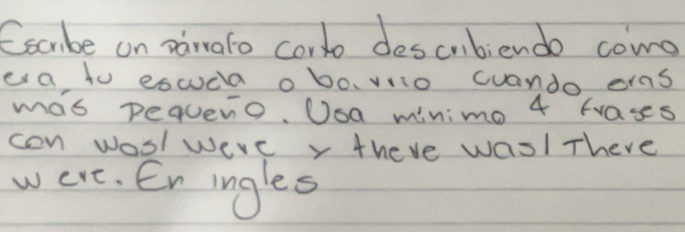 Escribe un párrafo corto describiendo cómo
era tu escuela o barrio cuando eras
más pequeño. Usa mínimo 4 frases
con was/were y there was/There
were. En ingles